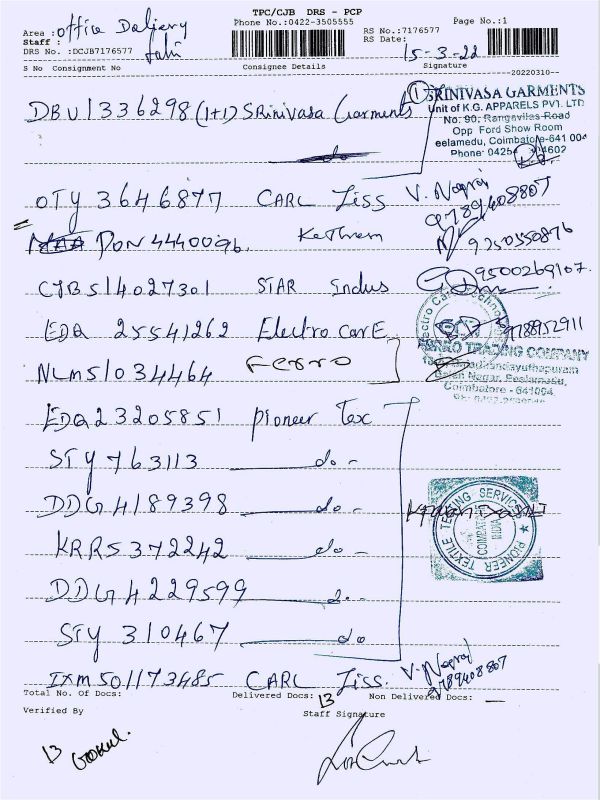 TPC/CJB DRS - PCP
Area : office Delivery
Phone No.:0422-3505555
RS No.:7176577
Page No.:1
Staff :
RS Date:
DRS No. :DCJB7176577
15-3-22
S No Consignment No
Consignee Details
Signature
--20220310--
DBU1336298 (1+1) SRinivasa Garments
1 SRINIVASA GARMENTS
Unit of K.G. APPARELS PVT. LTD
No: 90, Rangavilas Road
Opp Ford Show Room
eelamedu, Coimbatore-641 004
do
OTY 3646877 CARL Ziss
9789408807
DON 4440096.
9250550876
CJB514027301 STAR Indus
9500269107.
EDQ 25541262 Electro carE
FERRO TRADING COMPANY
NLM51034464 Ferro
Coimbatore - 641004
EDQ23205851 pioneer Tex
STY 763113 do -
DDG4189398 do -
PIONEER TEXTILE TESTING SERVICES
COIMBATORE
INDIA
KRR5372242 do -
DDG4229599 do -
STY 310467 do
IXM501173485 CARL Ziss.
9789408807
Total No. Of Docs:
Delivered Docs: 13
Non Delivered Docs: —
Verified By
Staff Signature
13
Gokul.